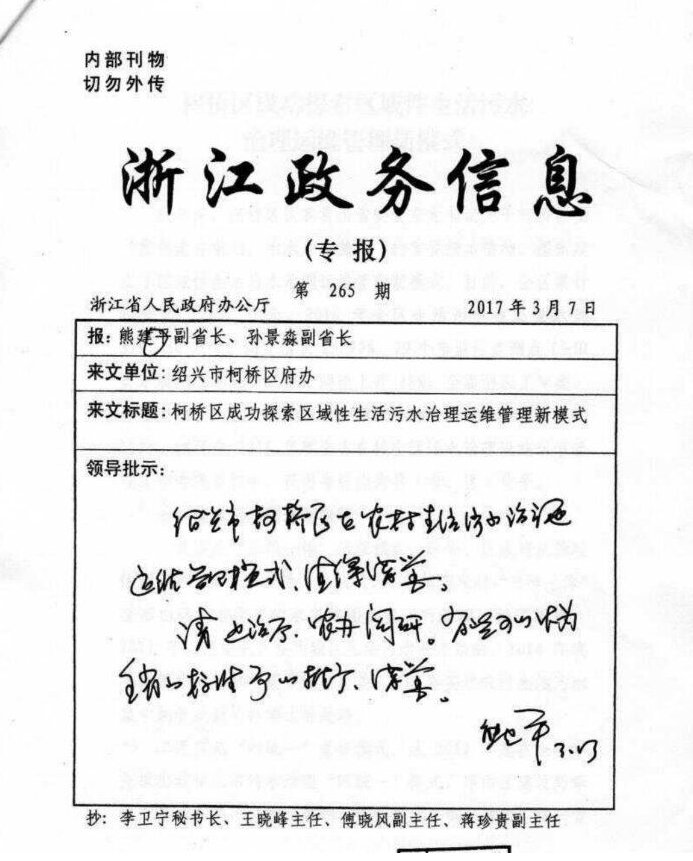 内部刊物
切勿外传
浙江政务信息
(专报)
第 265 期
浙江省人民政府办公厅 2017年3月7日
报：熊建平副省长、孙景淼副省长
来文单位：绍兴市柯桥区府办
来文标题：柯桥区成功探索区域性生活污水治理运维管理新模式
领导批示：
绍兴市柯桥区在农村生活污水治理
运维管理模式
请 农办阅研。 可以作为
全省 推广
平 3.
抄：李卫宁秘书长、王晓峰主任、傅晓风副主任、蒋珍贵副主任